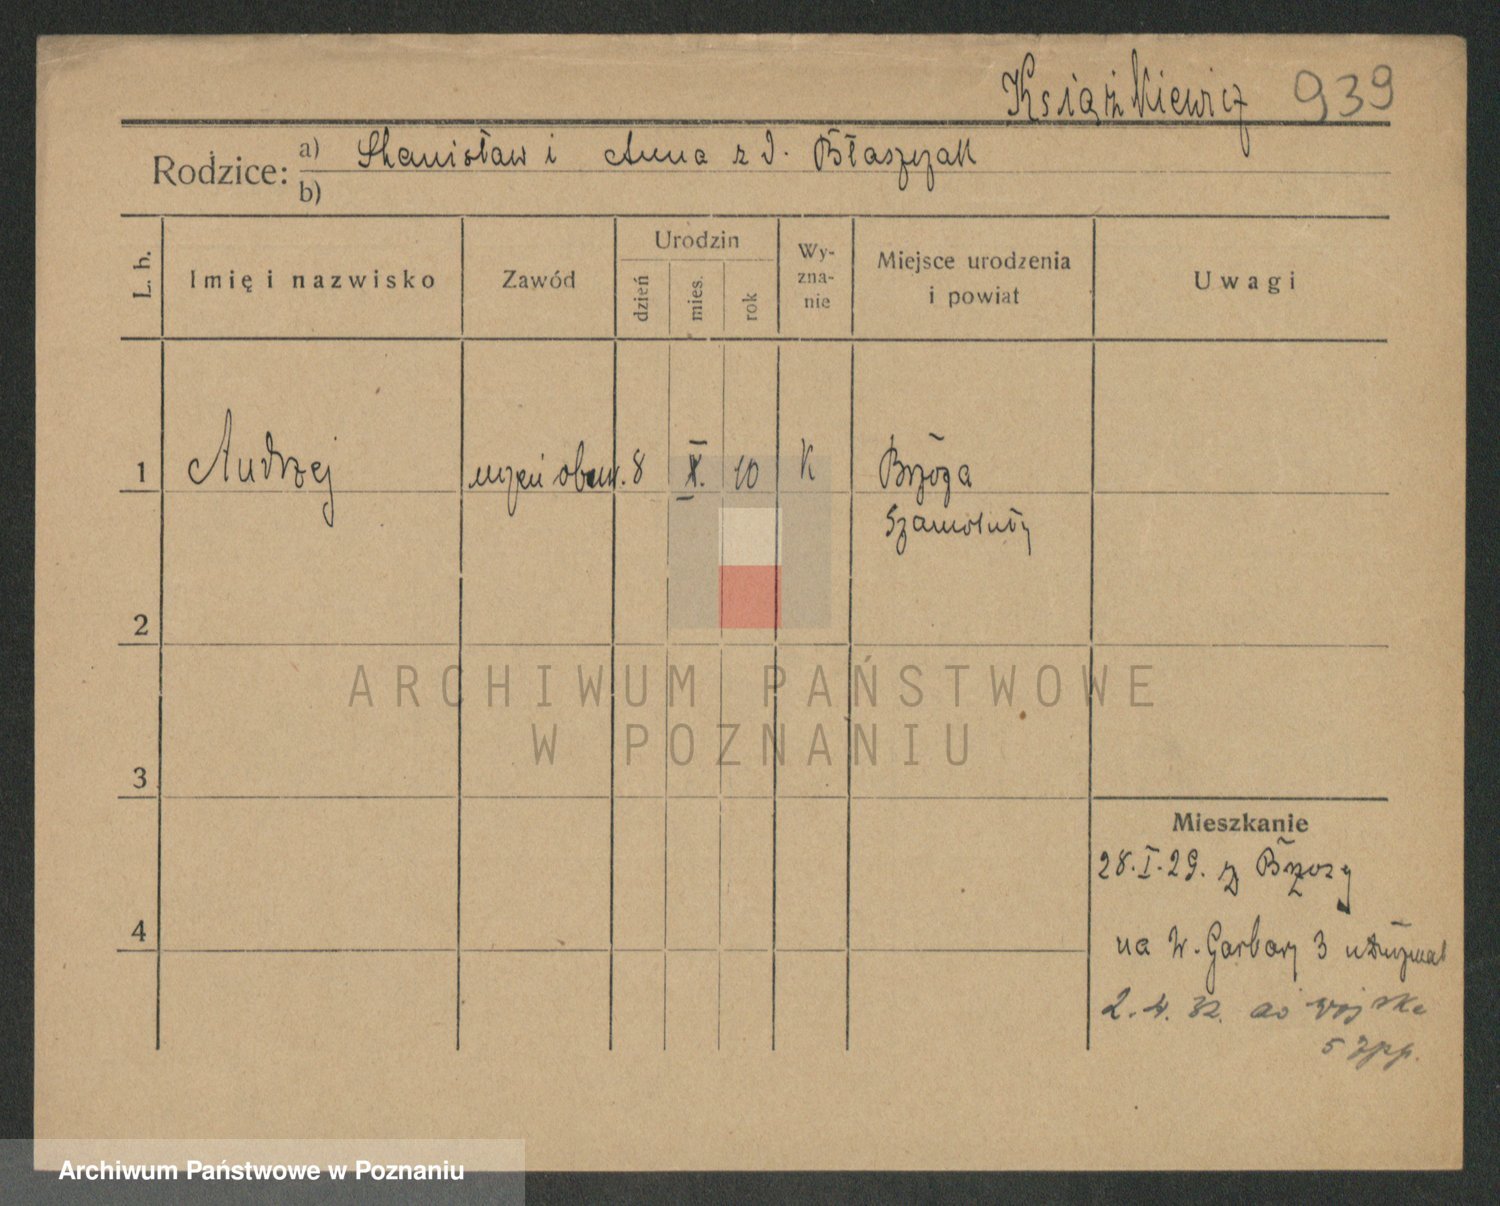 Książkiewicz 939
Rodzice: a) Stanisław i Anna z d. Błaszczak
b)
L. b.
Imię i nazwisko
Zawód
Urodzin
dzień
mies.
rok
Wy-
zna-
nie
Miejsce urodzenia
i powiat
Uwagi
1 Andrzej uczeń obuw. 8 X. 10 K Brzoza
Szamotuły
2
3
4
Mieszkanie
28.I.29. z Brzozy
na W. Garbary 3 u
2.4.32. do wojska
5
ARCHIWUM PAŃSTWOWE
W POZNANIU
Archiwum Państwowe w Poznaniu